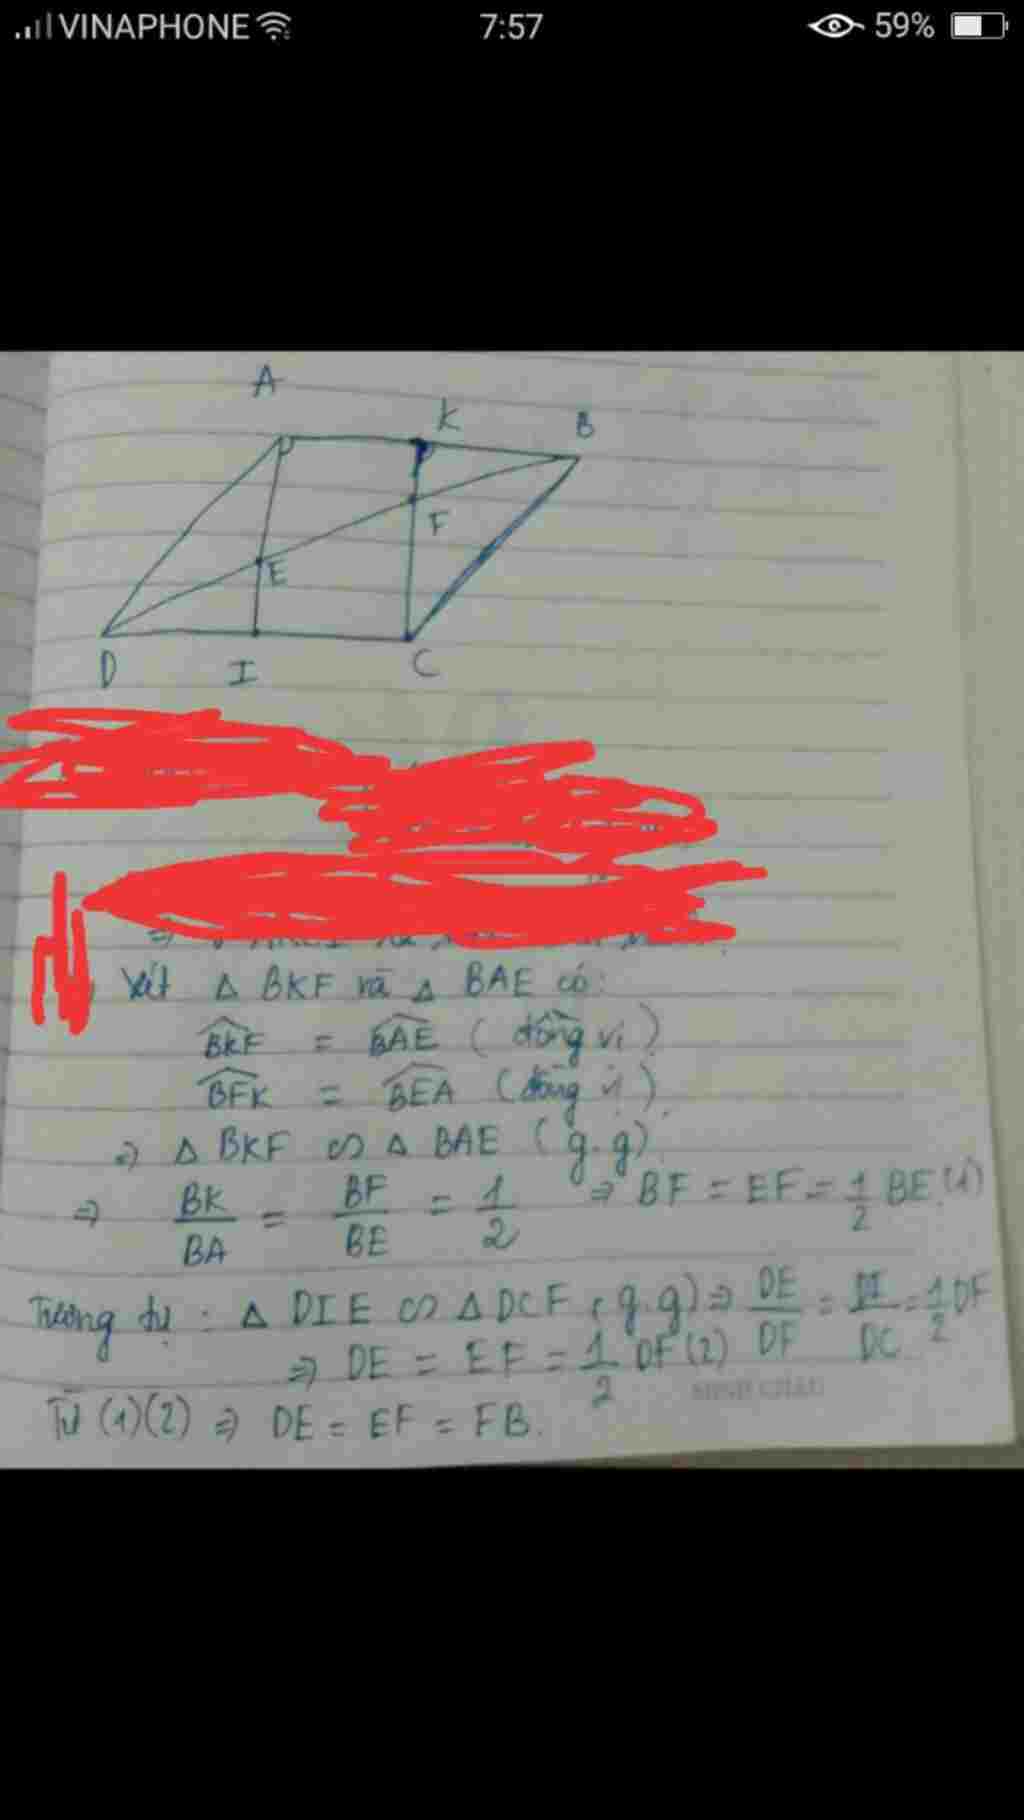 VINAPHONE 7:57 59%
A
K B
F
E
D I C
Xét Δ BKF và Δ BAE có:
BKF = BAE (đồng vị)
BFK = BEA (đồng vị)
=> Δ BKF ∽ Δ BAE (g.g)
=> BK/BA = BF/BE = 1/2 => BF = EF = 1/2 BE (1)
Tương tự: Δ DIE ∽ Δ DCF (g.g) => DE/DF = DI/DC = 1/2 DF
=> DE = EF = 1/2 DF (2)
MINH CHÂU
Từ (1)(2) => DE = EF = FB.